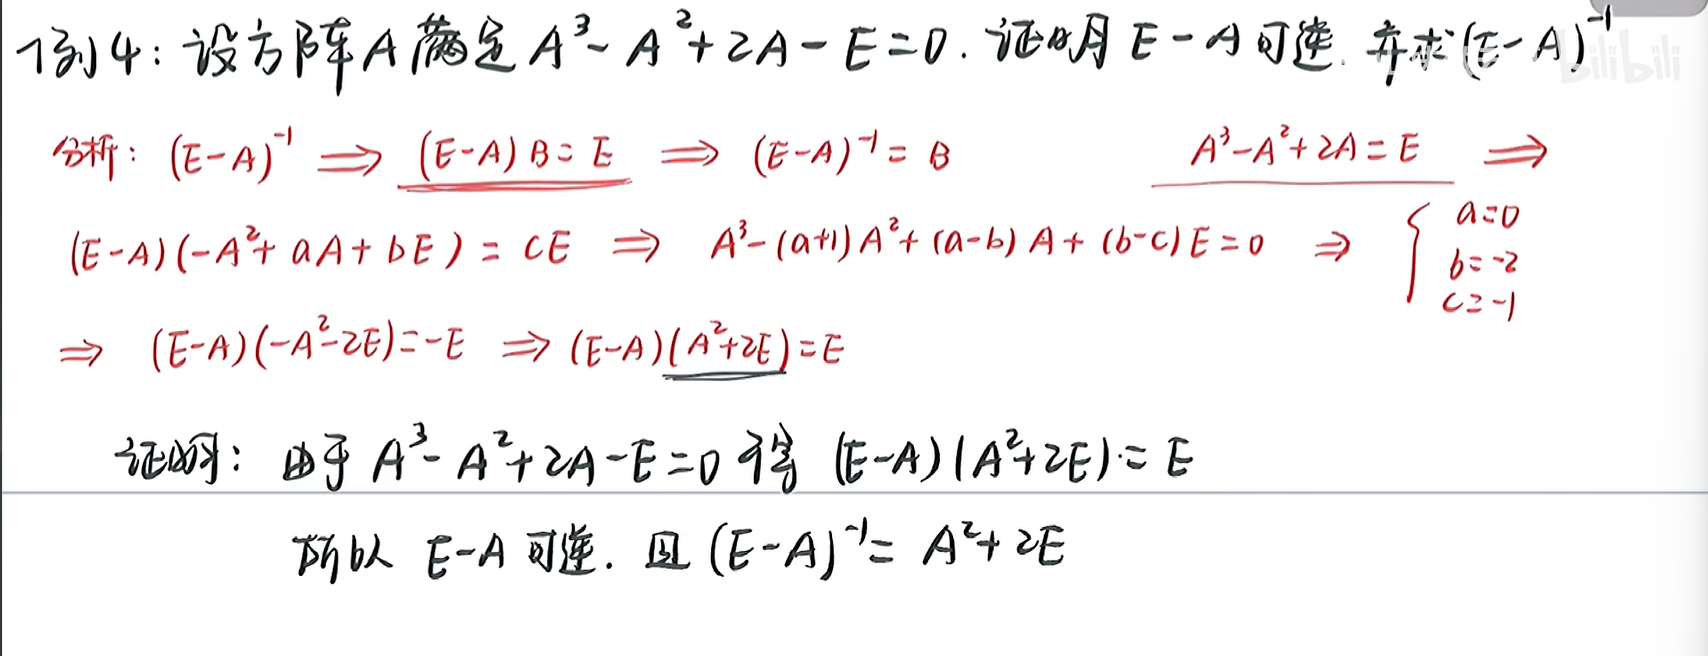 例4：设方阵A满足 A³-A²+2A-E=0. 证明 E-A可逆. 并求(E-A)⁻¹
bilibili
分析: (E-A)⁻¹ ⇒ (E-A)B=E ⇒ (E-A)⁻¹=B A³-A²+2A=E ⇒
(E-A)(-A²+aA+bE)=CE ⇒ A³-(a+1)A²+(a-b)A+(b-c)E=0 ⇒ { a=0
b=-2
c=-1
⇒ (E-A)(-A²-2E)=-E ⇒ (E-A)(A²+2E)=E
证明: 由于 A³-A²+2A-E=0 得 (E-A)(A²+2E)=E
所以 E-A 可逆. 且 (E-A)⁻¹=A²+2E